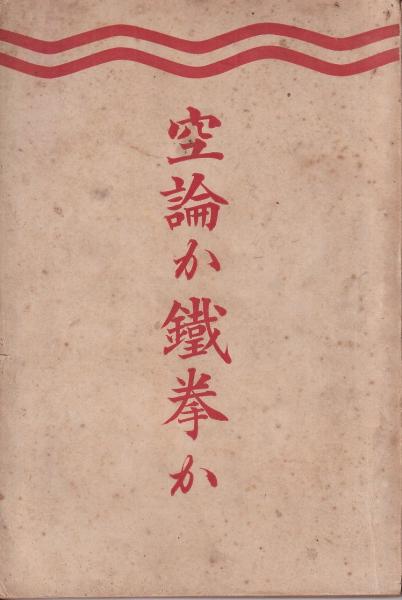 空論か鐵拳か